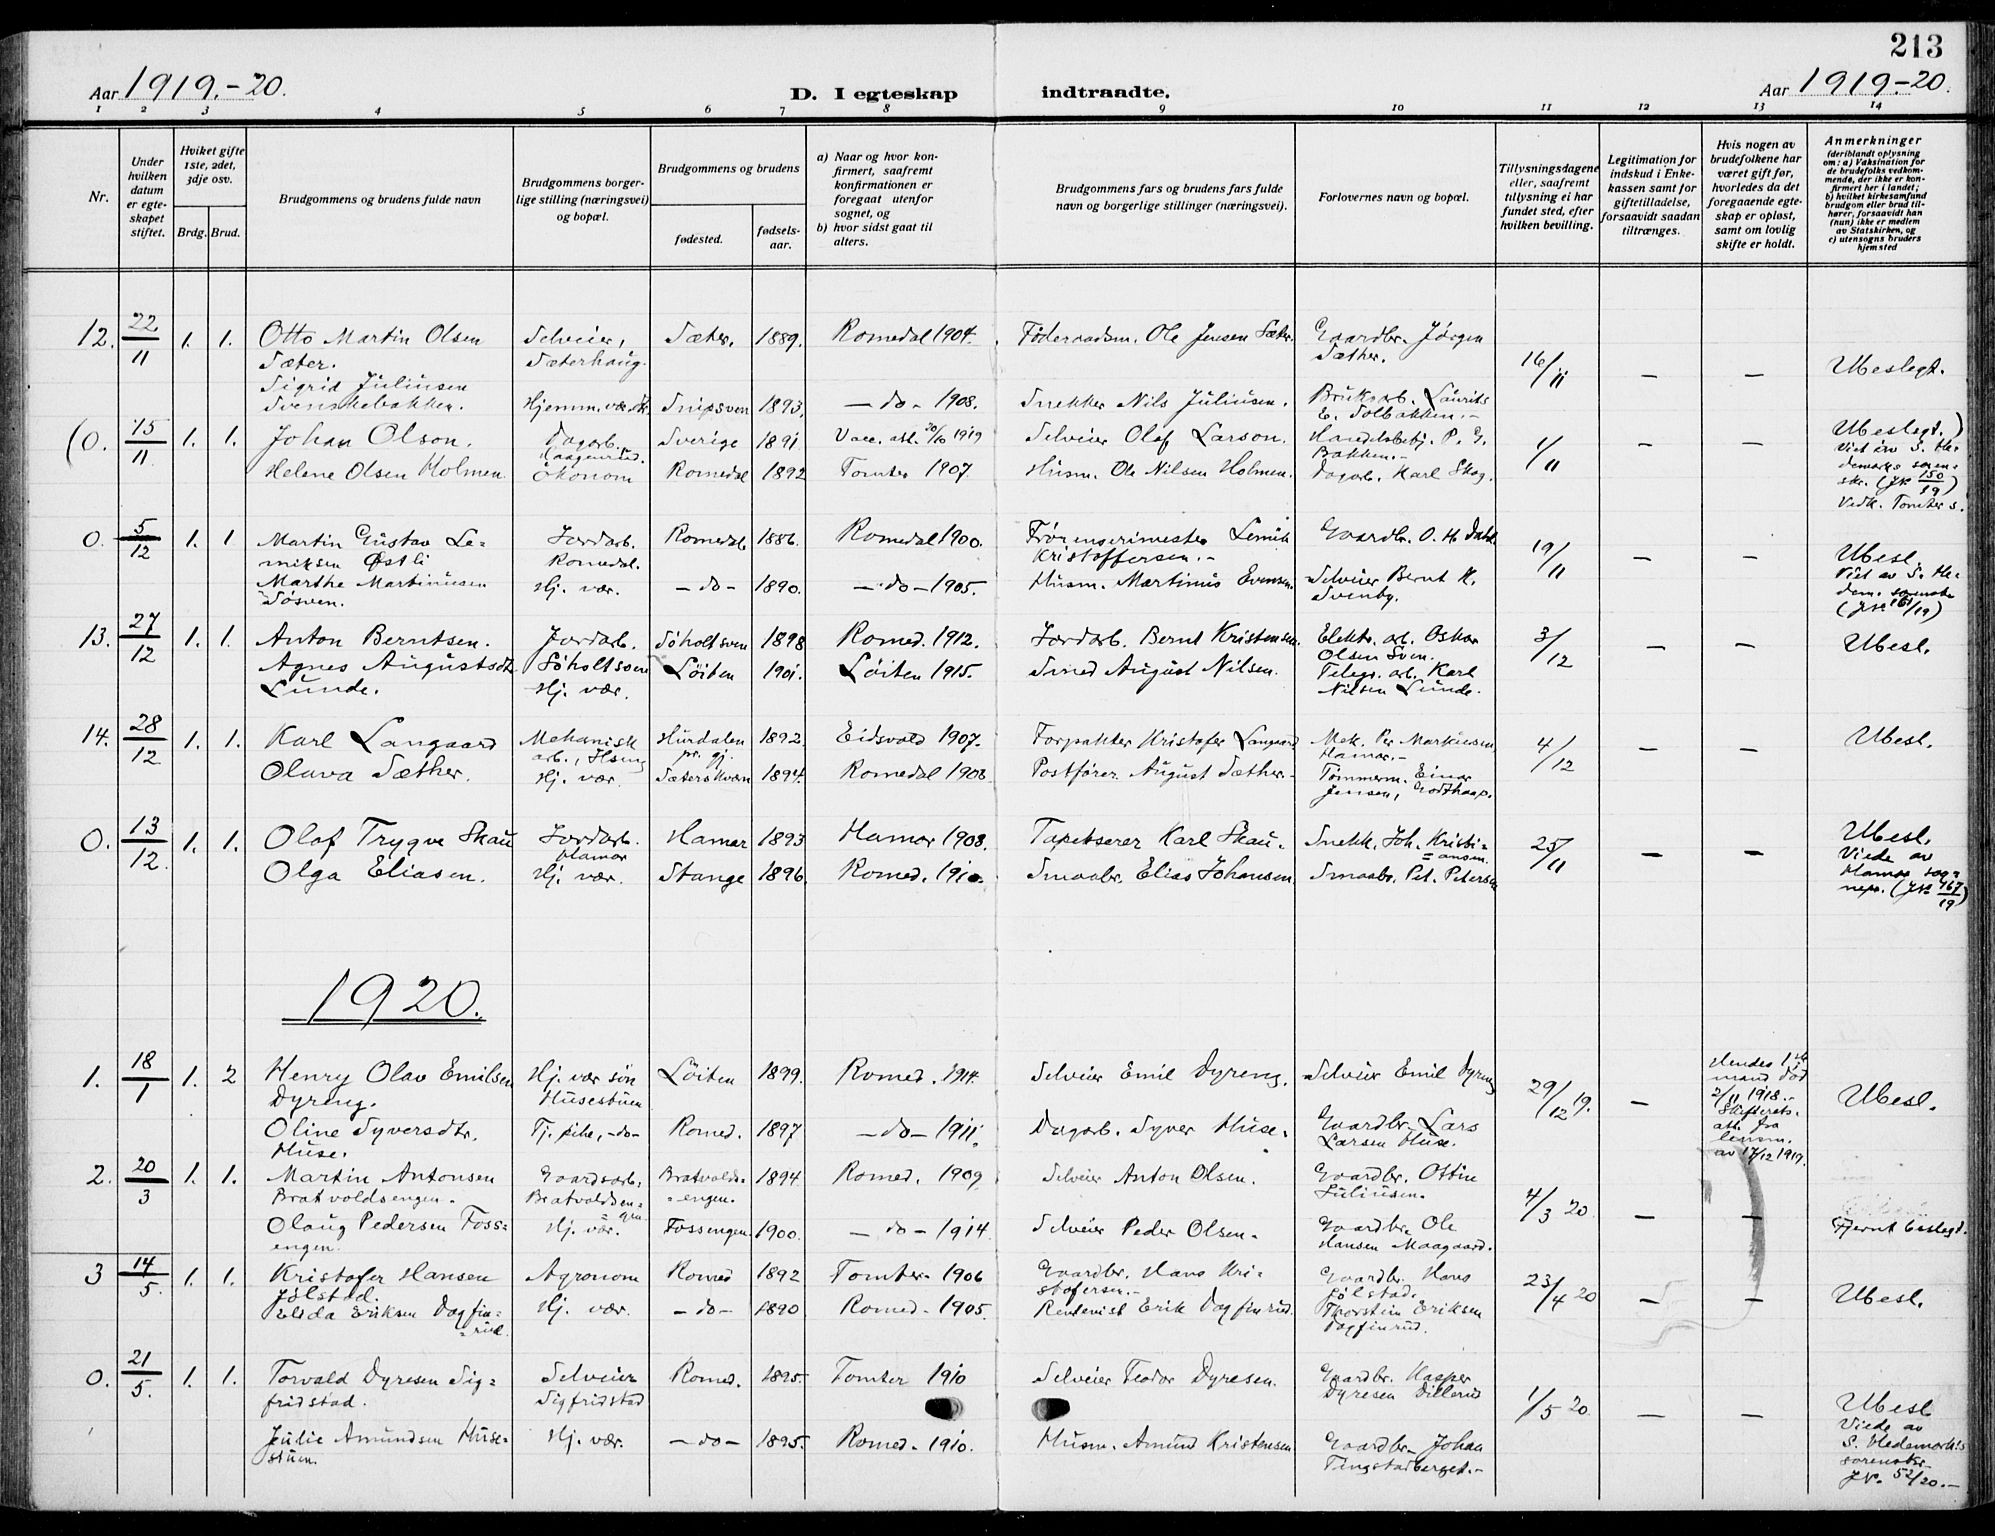 213
Aar 1919.-20.
D. I egteskap indtraadte.
Aar 1919.-20.
1 2 3 4 5 6 7 8 9 10 11 12 13 14
Nr.
Under hvilken datum er egteskapet stiftet.
Hviket gifte 1ste, 2det, 3dje osv.
Brdg. Brud.
Brudgommens og brudens fulde navn
Brudgommens borgerlige stilling (næringsvei) og bopæl.
Brudgommens og brudens
fødested.
fødselsaar.
a) Naar og hvor konfirmert, saafremt konfirmationen er foregaat utenfor sognet, og
b) hvor sidst gaat til alters.
Brudgommens fars og brudens fars fulde navn og borgerlige stillinger (næringsvei).
Forlovernes navn og bopæl.
Tillysningsdagene eller, saafremt tillysning ei har fundet sted, efter hvilken bevilling.
Legitimation for indskud i Enkekassen samt for giftetilladelse, forsaavidt saadan tiltrænges.
Hvis nogen av brudefolkene har været gift før, hvorledes da det foregaaende egteskap er opløst, samt om lovlig skifte er holdt.
Anmerkninger (deriblandt oplysning om: a) Vaksination for de brudefolks vedkommende, der ikke er konfirmert her i landet; b) hvilket kirkesamfund brudgom eller brud tilhører, forsaavidt han (hun) ikke er medlem av Statskirken, og c) utensogns bruders hjemsted
12. 22/11 1. 1. Otto Martin Olsen Sæter. Selveier, Sæterhaug. Sæter. 1889. Romedal 1904. Føderaadsm. Ole Jensen Sæter. Gaardbr. Jørgen Sæther. 16/11 — — Ubeslegt.
Sigrid Juliusen Svenskebakken. Hjemm. vær. Snipsven 1893. — do — 1908. Snekker Nils Juliusen. Bruksarb. Laurits E. Solbakken.-
(0. 15/11 1. 1. Johan Olson. Dagarb. Haagenrud. Sverige 1891 Vacc. att. 20/10 1919 Selveier Olof Larson. Handelsbetj. P. G. Bakken.- 1/11 — — Ubeslegt.)
Helene Olsen Holmen. Økonom Romedal 1892 Tomter 1907. Husm. Ole Nilsen Holmen. Dagarb. Karl Skog. Viet av S. Hedemarks sorenskr. (JN 150/19) Vedk. Tomter s.
0. 5/12 1. 1 Martin Gustav Lemiksen Østli Jordarb. Romedal. Romedal 1886. Romedal 1900. Kristoffersen.- Gaardbr. O. H. 19/11 — — Ubesl. Viet av S. Hedem. sorenskr (JN 161/19)
Marthe Martinusen Søsven. Hj. vær. — do — 1890. — do — 1905. Husm. Martinus Evensen. Selveier Bernt K. Svenby.
13. 27/12 1. 1. Anton Berntsen. Jordarb. Søholtsven Søholtsven 1898 Romed. 1912. Jordarb. Bernt Kristensen. Elektr. arb. Oskar Olsen Sven. 3/12 — — Ubesl.
Agnes Augustsdtr Lunde. Hj. vær. Løiten 1901. Løiten 1915. Smed August Nilsen. Telegr. arb. Karl Nilsen Lunde.
14. 28/12 1. 1. Karl Langaard Mekanisk arb., Ilseng Hurdalen pr. gj. 1892. Eidsvold 1907. Forpakter Kristofer Langaard Mek. Per Markusen Hamar.- 4/12 — — Ubesl.
Olava Sæther. Hj. vær. Sæterskvern 1894. Romedal 1908. Postfører August Sæther.- Tømmerm. Einar Jensen, Godthaap.
0. 13/12. 1. 1. Olaf Trygve Skau Jordarb. Hamar Hamar 1893 Hamar 1908. Tapetserer Karl Skau. Snekk. Joh. Kristiansen. 25/11 — — Ubesl. Viede av Hamar sognepr. (JN 467/19)
Olga Eliasen. Hj. vær. Stange 1896. Romed. 1910. Smaabr. Elias Johansen. Smaabr. Pet. Petersen
1920.
1. 18/1 1. 2 Henry Olav Emilsen Dyreng. Hj. vær søn Husestuen Løiten 1899. Romed. 1914. Selveier Emil Dyreng. Selveier Emil Dyreng 29/12 19. — Hendes 1ste mand død 2/11 1918.- Skifterets. att. fra lensm. av 17/12 1919. Ubesl.
Oline Syversdtr. Huse. Tj. pike, -do- Romed. 1897 — do — 1911. Dagarb. Syver Huse. Gaardbr. Lars Larsen Huse.
2. 20/3 1. 1. Martin Antonsen Bratvoldsengen. Gaardsarb. Bratvoldsengen Bratvoldsengen. 1894 Romed. 1909 Selveier Anton Olsen. Gaardbr. Ottin Juliusen. 4/3 20. — — Fjernt beslegt.
Olaug Pedersen Fossengen. Hj. vær. Fossengen. 1900. — do — 1914. Selveier Peder Olsen. Gaardbr. Ole Hansen Maagaard.
3 14/5. 1. 1. Kristofer Hansen Jølstad. Agronom Romed 1892 Tomter 1906 Gaardbr. Hans Kristofersen.- Gaardbr. Hans Jølstad. 23/4 20 — — Ubesl.
Elida Eriksen Dagfinrud. Hj. vær. — do — 1890 Romed. 1905. Rentenist Erik Dagfinrud. Thorstein Eriksen Dagfinrud.
0. 21/5. 1. 1. Torvald Dyresen Sigfridstad. Selveier Sigfridstad Romed. 1895. Tomter 1910 Selveier Teodor Dyresen. Gaardbr. Kasper Dyresen Dillerud 1/5 20. — — Ubesl Viede av S. Hedemarks sorenskr. JN. 52/20.-
Julie Amundsen Husestuen. Hj. vær. — do — 1895. Romed. 1910. Husm. Amund Kristensen Gaardbr. Johan Tingstadberget.-